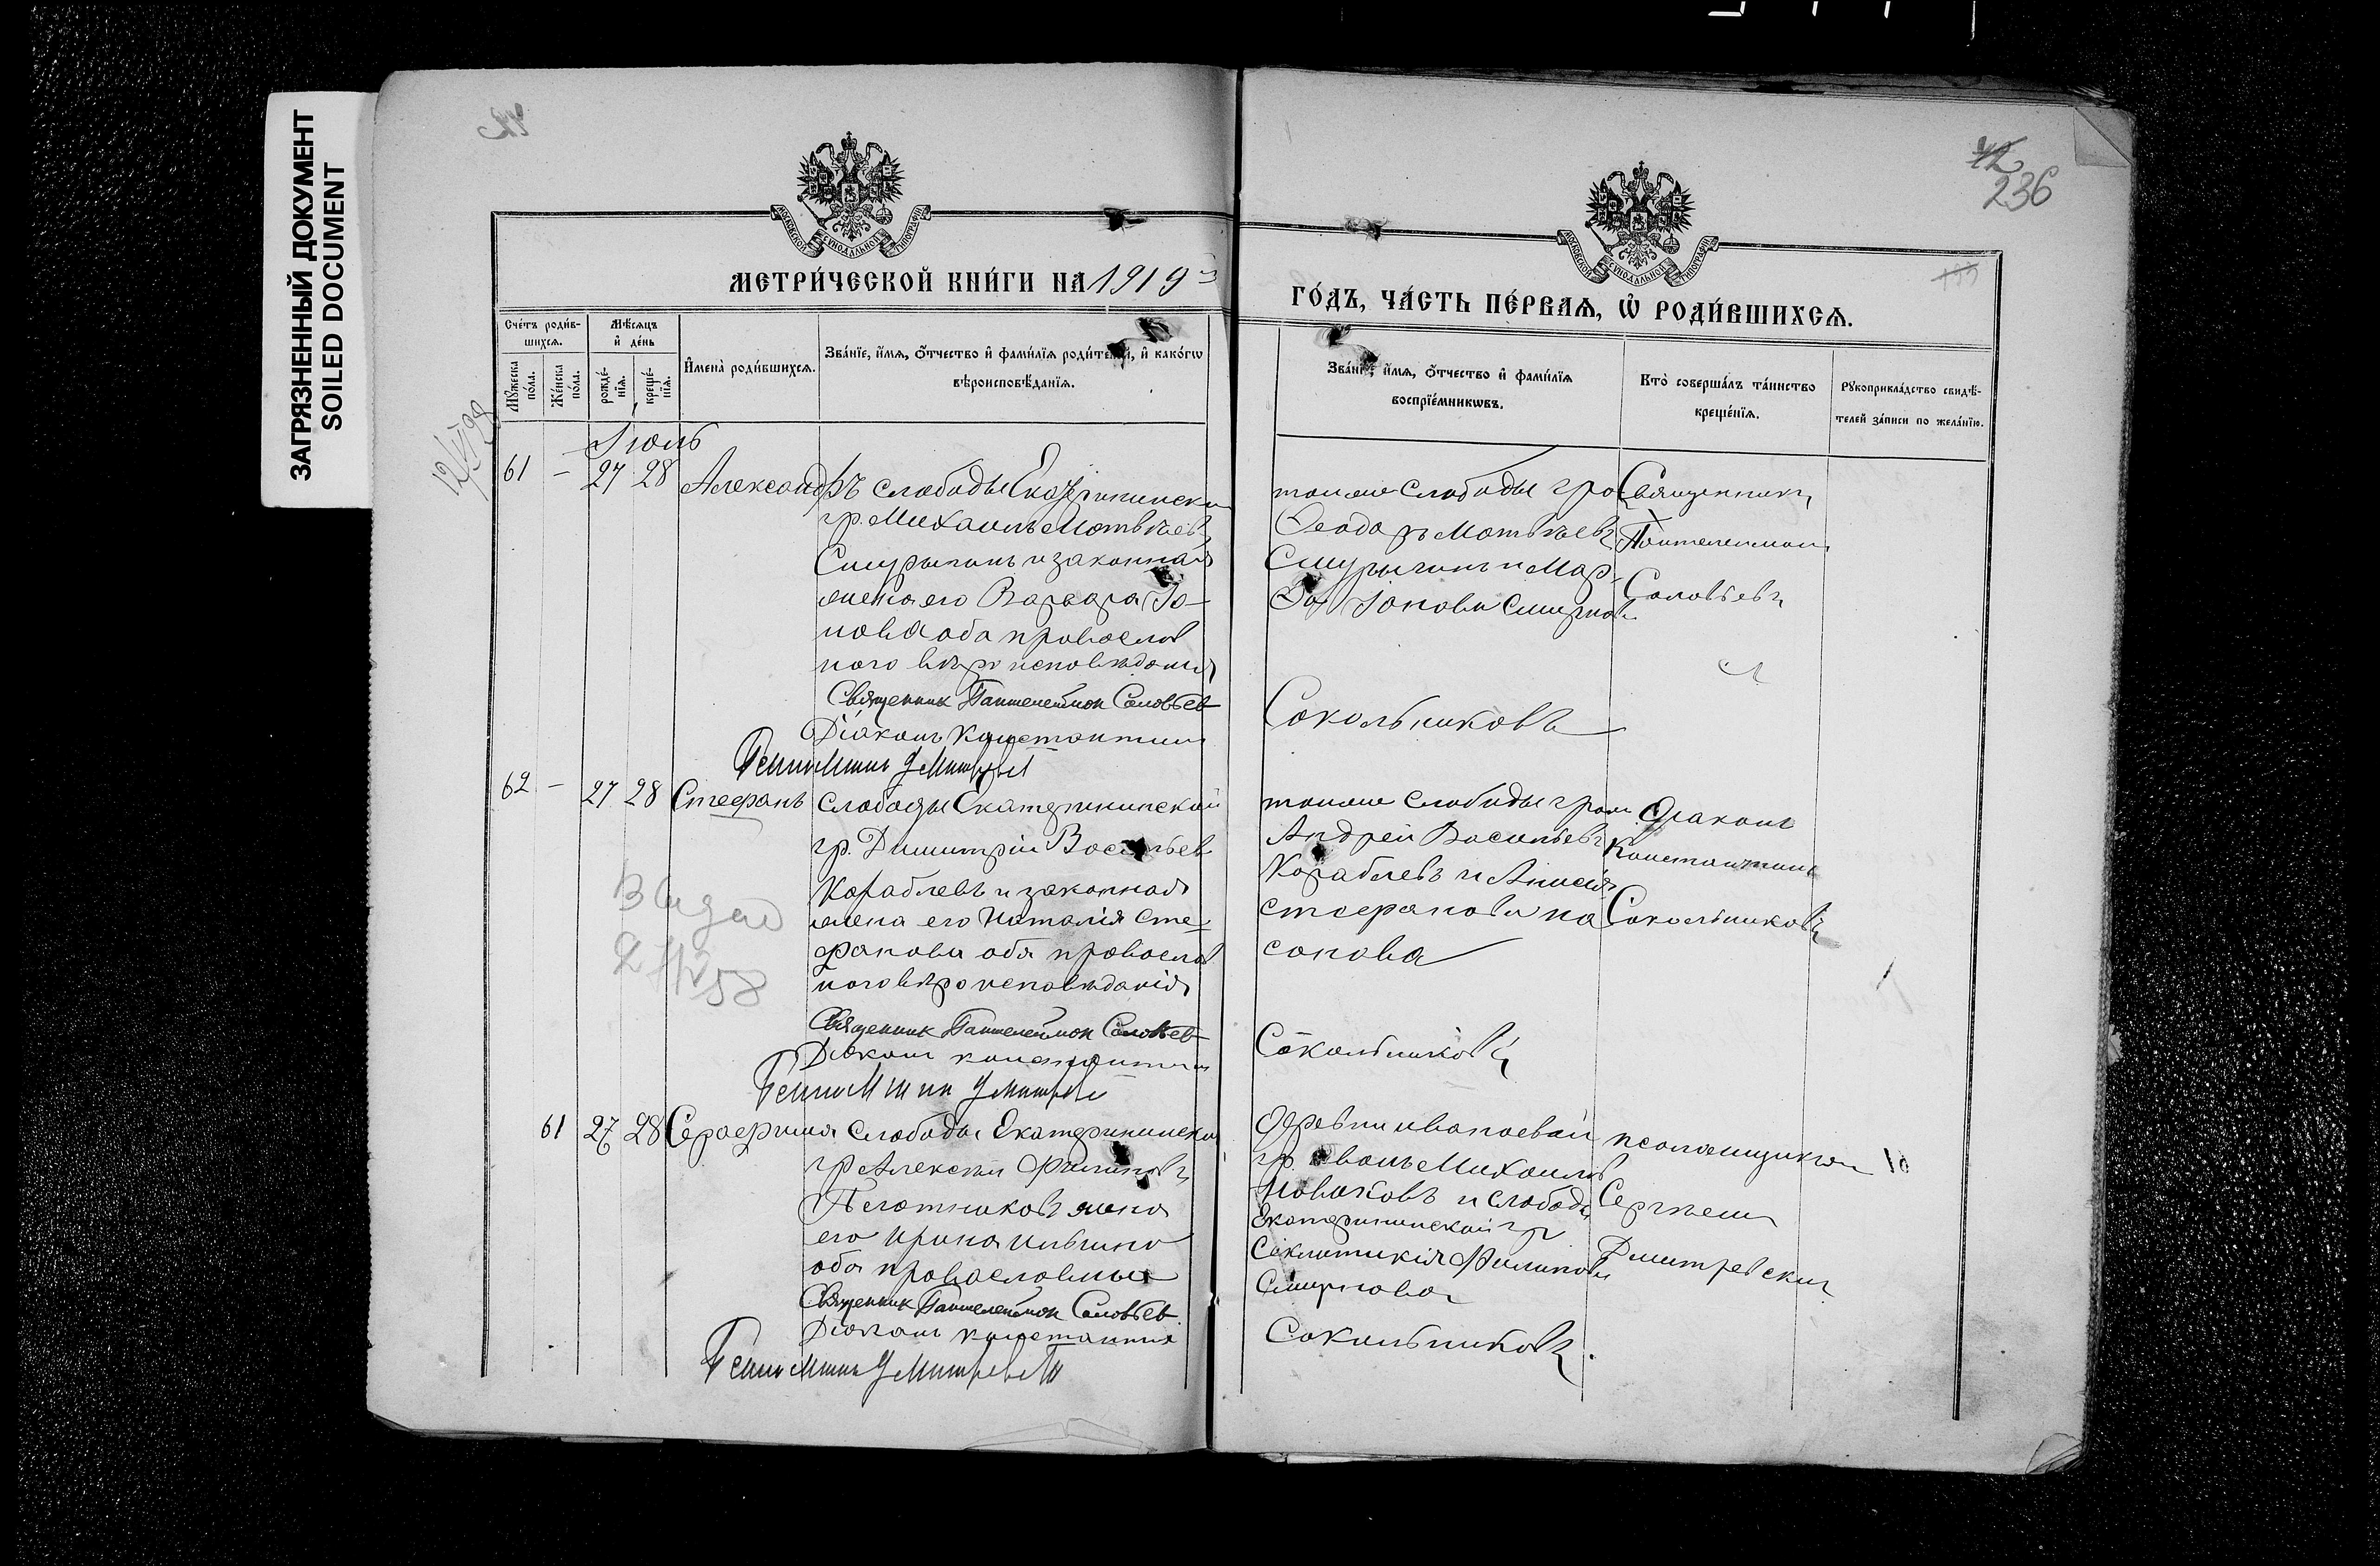 ЗАГРЯЗНЕННЫЙ ДОКУМЕНТ
SOILED DOCUMENT
42
236
МОСКОВСКОЙ СѴНОДАЛЬНОЙ ТИПОГРАФІИ
МОСКОВСКОЙ СѴНОДАЛЬНОЙ ТИПОГРАФІИ
МЕТРИ́ЧЕСКОЙ КНИ́ГИ НА 1919
ГО́ДЪ, ЧА́СТЬ ПЕ́РВАЯ, Ѡ҆ РОДИ́ВШИХСЯ.
Сче́тъ роди́вшихся.
Мѣ́сяцъ и҆ де́нь
Мꙋ́жеска по́ла.
Же́нска по́ла.
рожде́нїя.
креще́нїя.
И҆мена̀ роди́вшихся.
Зва́нїе, и҆́мя, ѻ҆́тчество и҆ фами́лїя роди́телей, и҆ како́гѡ
вѣроисповѣ́данїя.
Зва́нїе, и҆́мя, ѻ҆́тчество и҆ фами́лїя
воспрїе́мникѡвъ.
Кто̀ соверша́лъ та́инство
креще́нїя.
Рꙋкоприкла́дство свидѣ́-
телей за́писи по жела́нїю.
Іюль
61 - 27 28 Александръ слободы Екатерининской
гр. Михаилъ Матвѣевъ
и законная
жена его Варвара Іо-
нова оба православ
ного вѣроисповѣдания
Священник Пантелеймон Соловьев
Діаконъ Константин
тоиже слободы гр
Ѳеодоръ Матвѣевъ
и Мар-
Іонова Смирнова
Сокольниковъ
Священникъ
Пантелеимон
Соловьевъ
62 - 27 28 Стефанъ слободы Екатерининской
гр. Димитрій Васильев
Кораблевъ и законная
жена его Наталія Сте-
фанова оба православ
ного вѣроисповѣданія
Священник Пантелеймон Соловьев
Діаконъ Константин
тоиже слободы граж
Андрей Васильевъ
Кораблевъ и Анисія
Стефанова
Сокольниковъ
Діаконъ
Константинъ
Сокольниковъ
61 27 28 Серафима слободы Екатерининской
гр Алексѣй Филиповъ
Плотниковъ жена
его Ирина Ильина
оба православные
Священник Пантелеймон Соловьев
Діаконъ Константин
деревни
гр. Иванъ Михаилов
Новиковъ и слободы
Екатерининской гр
Синклитикія Филипова
Смирнова
Сокольниковъ.
псаломщикъ
Сергѣй
Дмитревский